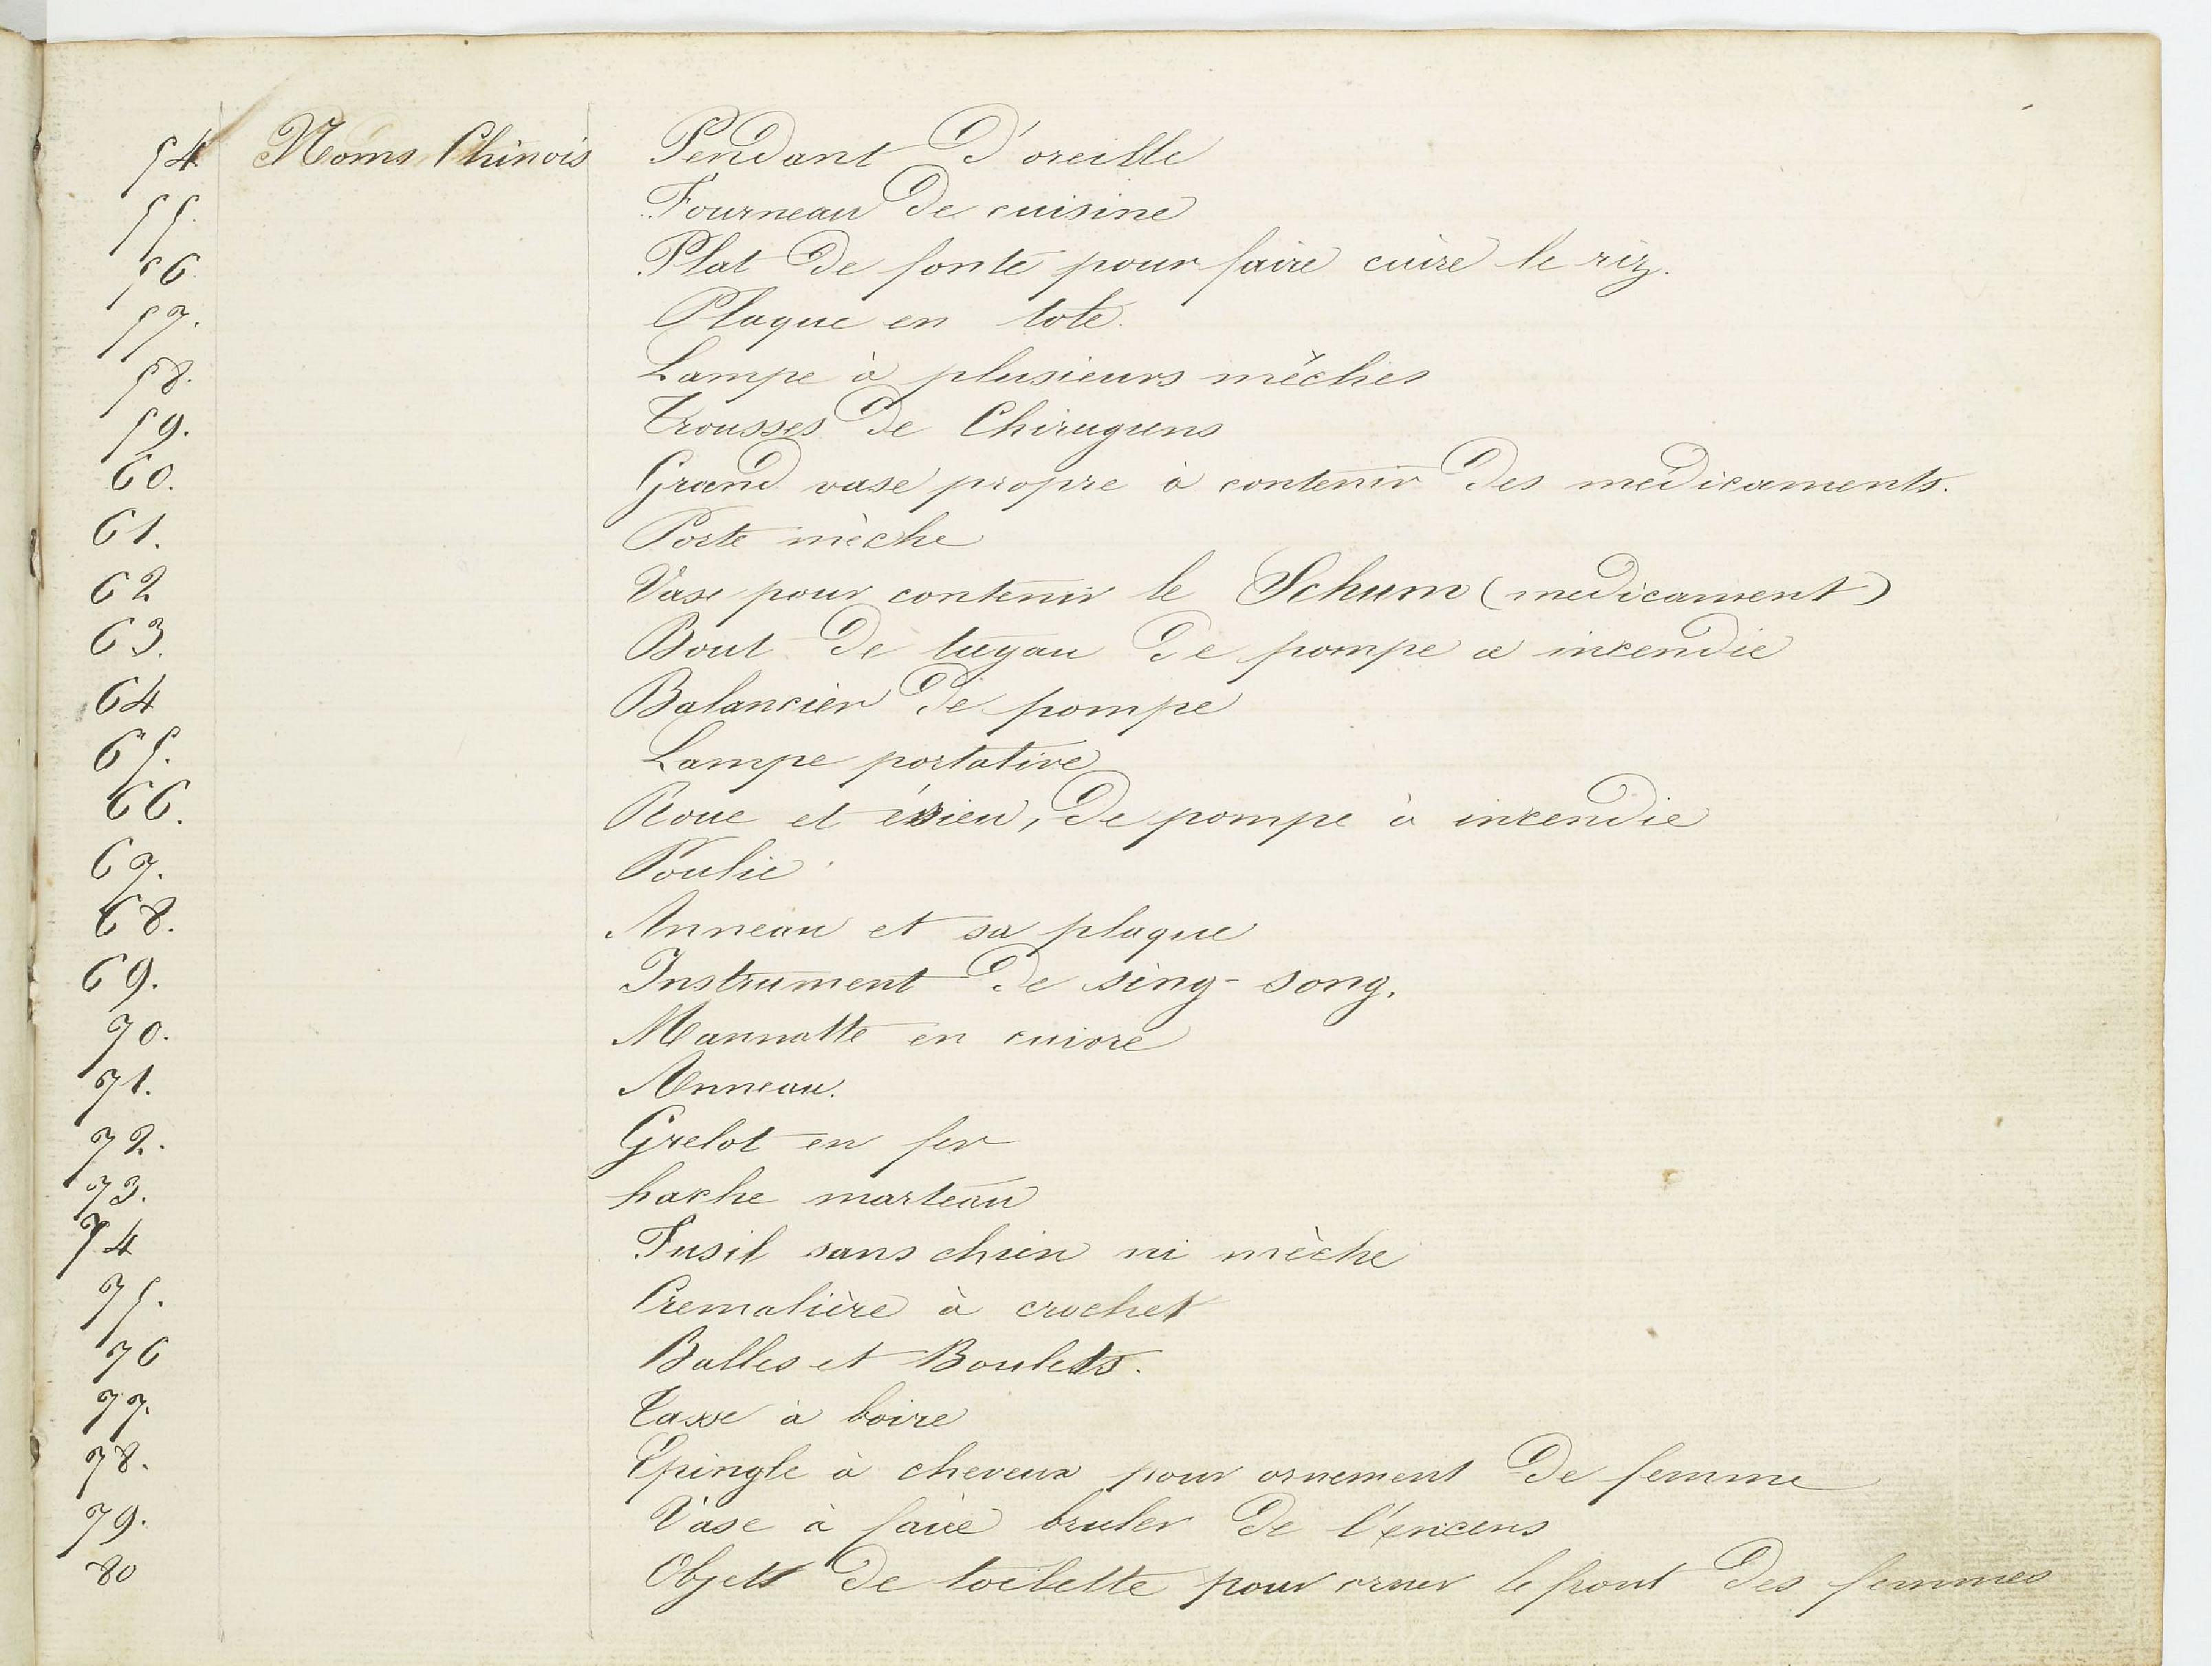 54 Noms Chinois Pendant d'oreille
55. Fourneau de cuisine
56 Plat de fonte pour faire cuire le riz.
57. Plaque en tole.
58. Lampe à plusieurs mêches
59. Trousses de Chirugiens
60. Grand vase propre à contenir des médicaments.
61. Porte mèche
62 Vase pour contenir le Schum (medicament)
63. Bout de tuyau de pompe a incendie
64 Balancier de pompe
65. Lampe portative
66. Roue et éssieu, de pompe à incendie
67. Poulie
68. Anneau et sa plaque
69. Instrument de sing-song.
70. Mannotte en cuivre
71. Anneau.
72. Grelot en fer
73. hache marteau
74 Fusil sans chien ni mèche
75. Cremalière à crochet
76 Balles et Boulets.
77. Tasse à boire
78. Epingle à cheveux pour ornement de femme
79. Vase à faire bruler de l'encens
80 Objets de toilette pour orner le front des femmes